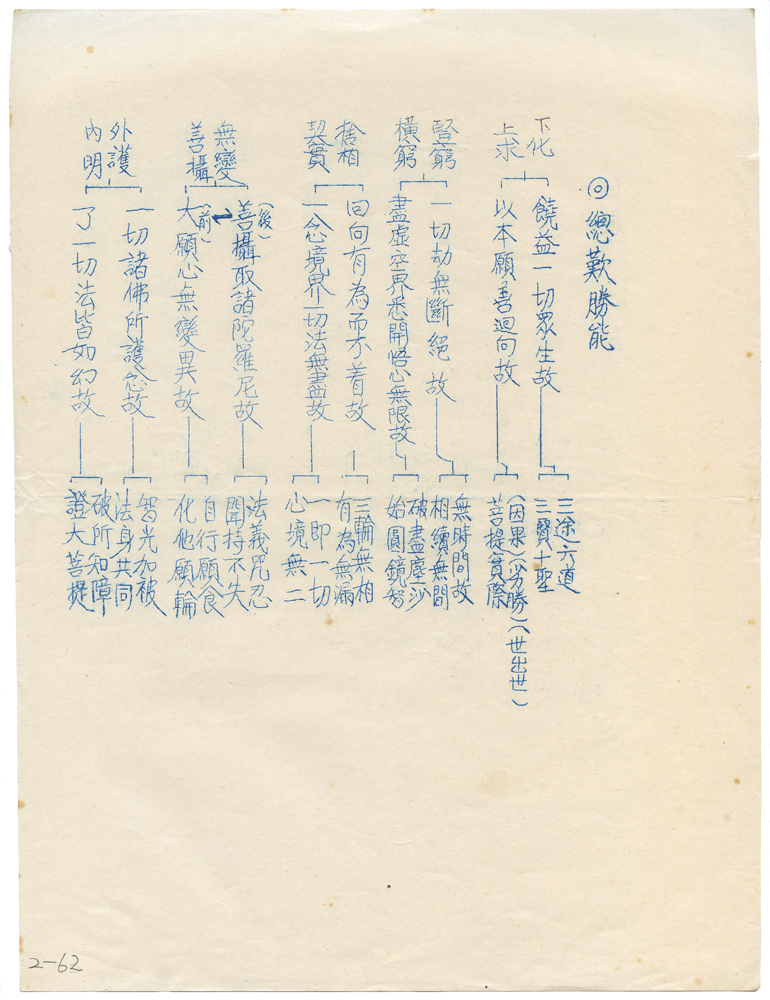 ◎總歎勝能
下化
上求
饒益一切眾生故
以本願善迴向故
三途六道
三賢十聖
(因果)(劣勝)(世出世)
菩提實際
豎窮
橫窮
一切劫無斷絕故
盡虛空界悉開悟心無限故
無時間故
相續無間
破盡塵沙
始圓鏡智
捨相
契貫
回向有為而不着故
一念境界一切法無盡故
三輪無相
有為無漏
一即一切
心境無二
無變
善攝
(後)善攝取諸陀羅尼故
(前)大願心無變異故
法義咒忍
聞持不失
自行願食
化他願輪
外護
內明
一切諸佛所護念故
了一切法皆如幻故
智光加被
法身共同
破所知障
證大菩提
2-62